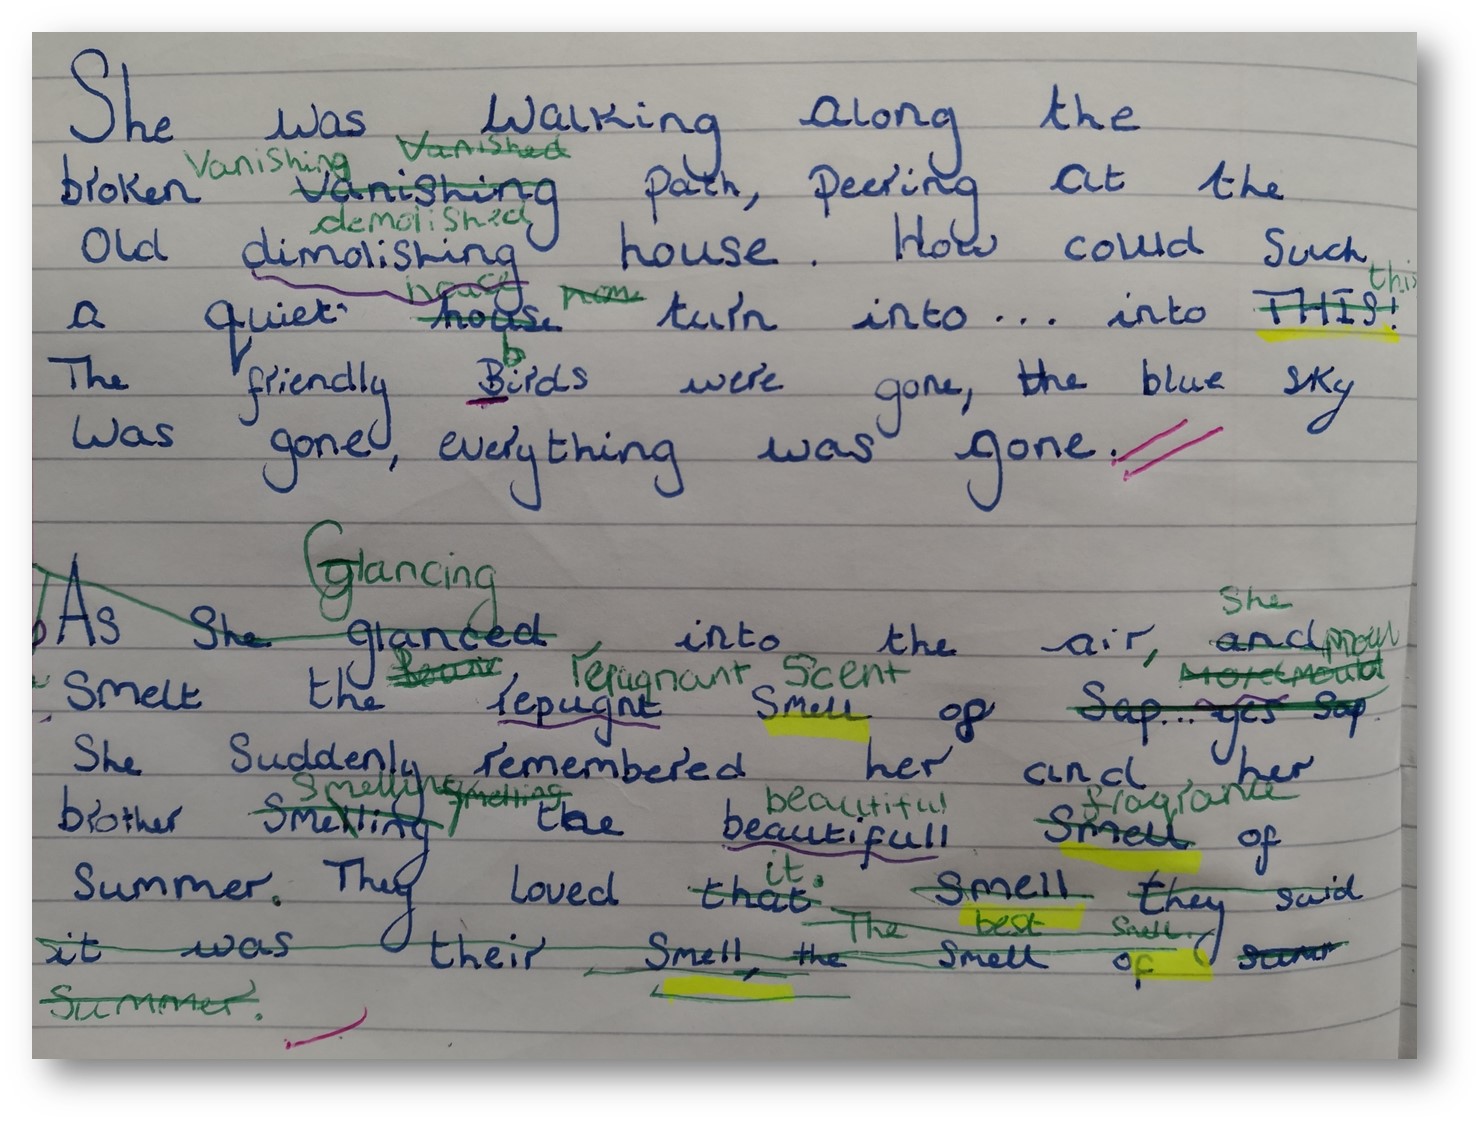 She was walking along the
Vanishing Vanished
broken vanishing path, peering at the
demolished
old dimolishing house. How could such
house this
a quiet house turn into... into THIS!
b
The friendly Birds were gone, the blue sky
was gone, everything was gone.
Glancing
She
As She glanced, into the air, and
repugnant Scent
smelt the repugnt smell of Sap... yes sap.
She suddenly remembered her and her
smelling smelling beautiful fragrance
brother smelling the beautifull smell of
it.
summer. They loved that smell they said
The best smell.
it was their smell, the smell of
summer.